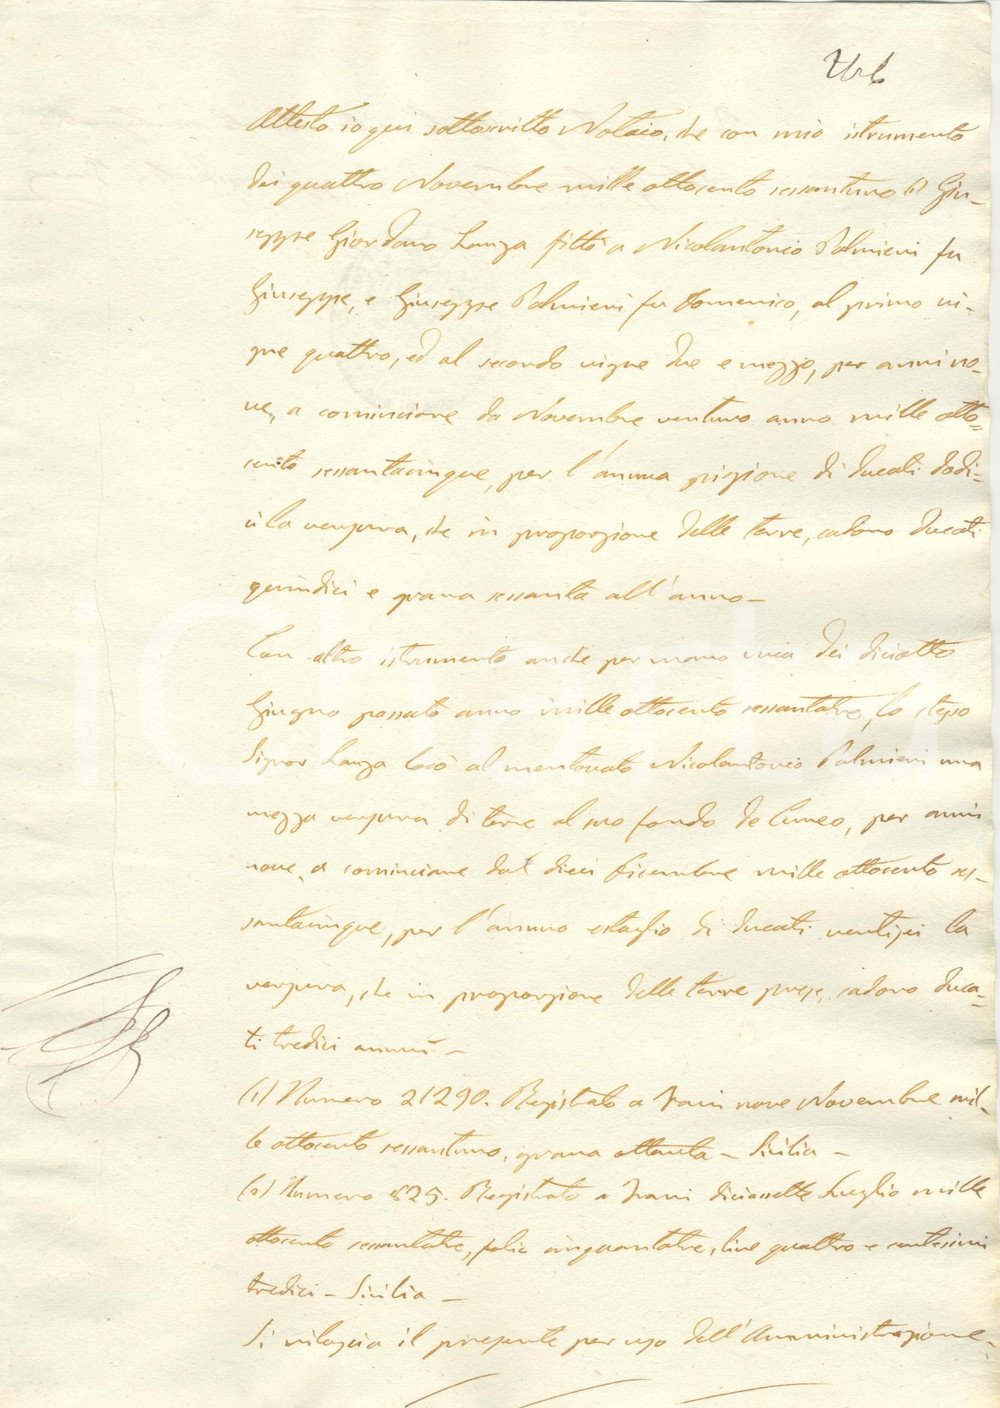 Attesto io qui sottoscritto Notaio, che con mio istrumento
dei quattro Novembre mille ottocento sessantuno (1) Giu-
seppe Giordano Lanza fittò a Nicolantonio Palmieri fu
Giuseppe, e Giuseppe Palmieri fu Domenico, al primo vi-
gne quattro, ed al secondo vigne due e mezzo, per anni no-
ve, a cominciare da Novembre venturo anno mille otto-
cento sessantacinque, per l'annua pigione di ducati dodi-
ci la versura, che in proporzione delle terre, cadono ducati
quindici e grana sessanta all'anno —
Con altro istrumento anche per mano mia dei diciotto
Giugno passato anno mille ottocento sessantatre, lo stesso
Signor Lanza locò al mentovato Nicolantonio Palmieri una
mezza versura di terre al suo fondo de Cuneo, per anni
nove, a cominciare dal dieci Dicembre mille ottocento ses-
santacinque, per l'annuo estaglio di ducati ventisei la
versura, che in proporzione delle terre prese, cadono duca-
ti tredici annui —
(1) Numero 21290. Registrato a Trani nove Novembre mil-
le ottocento sessantuno, grana ottanta — Sicilia —
(2) Numero 825. Registrato a Trani diciassette Luglio mille
ottocento sessantatre, folio cinquantatre, lire quattro e centesimi
tredici — Sicilia —
Si rilascia il presente per uso dell'Amministrazione